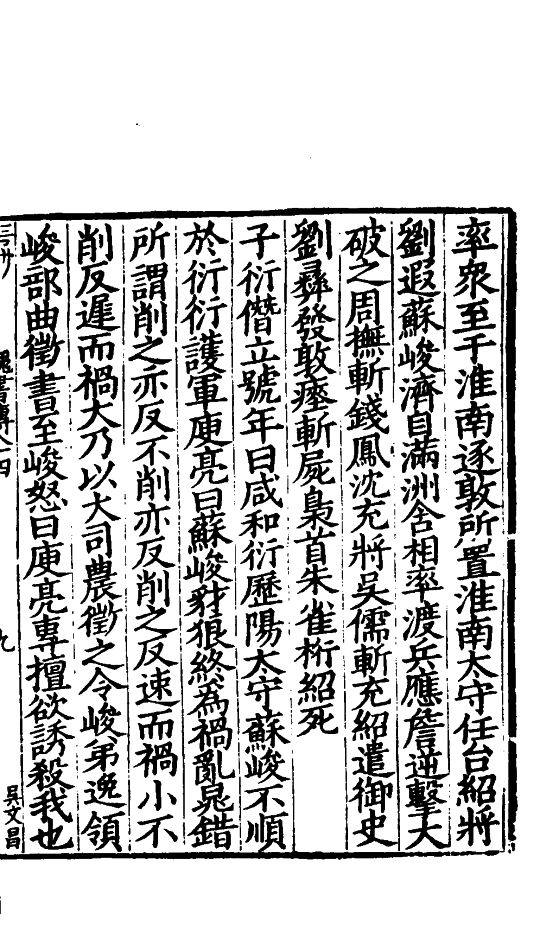 率衆至于淮南逐敦所置淮南太守任台紹將
劉遐蘇峻濟自滿洲含相率渡兵應詹逆擊大
破之周撫斬錢鳳沈充將吳儒斬充紹遣御史
劉彞發敦瘞斬屍梟首朱雀桁紹死
子衍僭立號年曰咸和衍歷陽太守蘇峻不順
於衍衍護軍庾亮曰蘇峻豺狼終爲禍亂晁錯
所謂削之亦反不削亦反削之反速而禍小不
削反遲而禍大乃以大司農徵之令峻弟逸領
峻部曲徵書至峻怒曰庾亮專擅欲誘殺我也
魏書傳八十四
九
吳文昌